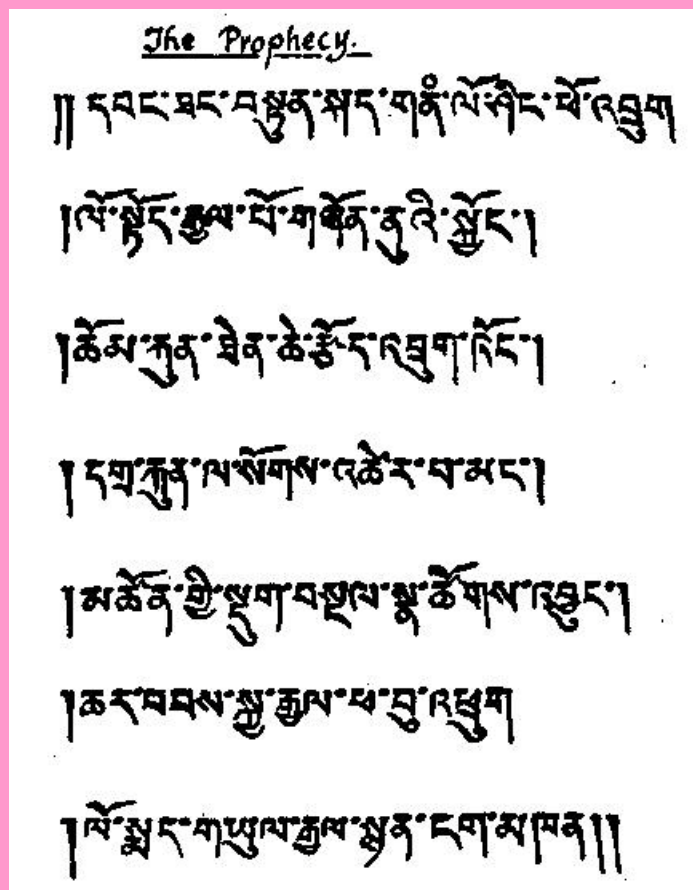 The Prophecy.
།། དབང་ཐང་བསྟུན་སྐད་གནཾ་ལོ་ཤིང་ཕོ་འབྲུག
།ལོ་སྟོད་རྒྱལ་པོ་གཞོན་ནུའི་སྐྱོང་།
།ཆོམ་རྐུན་ཐེན་ཆེ་རྩོད་འཁྲུག་འོང་།
།དགྲ་རྐུན་ལ་སོགས་འཚེ་བ་མང་།
།མཚོན་གྱི་སྡུག་བསྔལ་སྣ་ཚོགས་འབྱུང་།
།ཆར་བབས་སྐྱ་རྒྱལ་ཕ་བུ་འཕྲུག
།ལོ་སྨད་གཡུལ་རྒྱལ་སྙན་ངག་མཁན།།